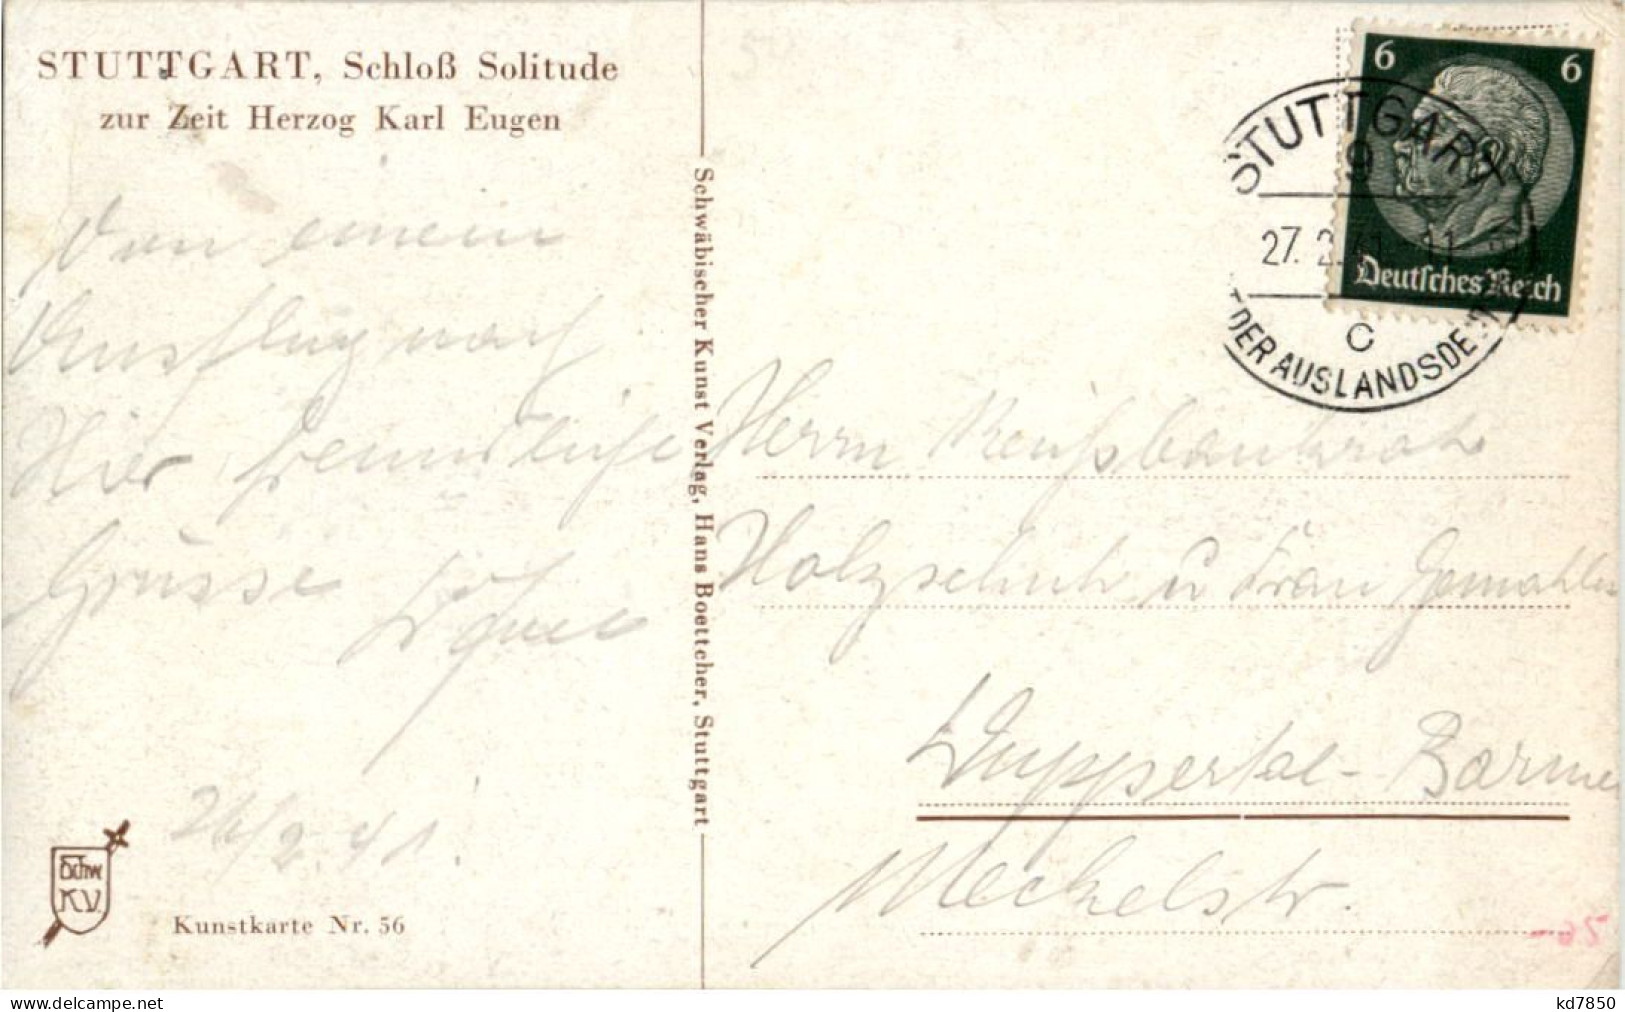 STUTTGART, Schloß Solitude
zur Zeit Herzog Karl Eugen
Von einem
Ausflug nach
Hier freundliche
Grüsse
26/2.41.
Schw
K.V.
Kunstkarte Nr. 56
Schwäbischer Kunst Verlag, Hans Boettcher, Stuttgart
6 6
Deutsches Reich
STUTTGART
9
27. 2. 41. 11
C
DER AUSLANDSDE
Herrn Reichsbankrat
Holzschuh u Frau Gemahlin
Wuppertal-Barmen
Meckelstr.
delcampe.net
kd7850